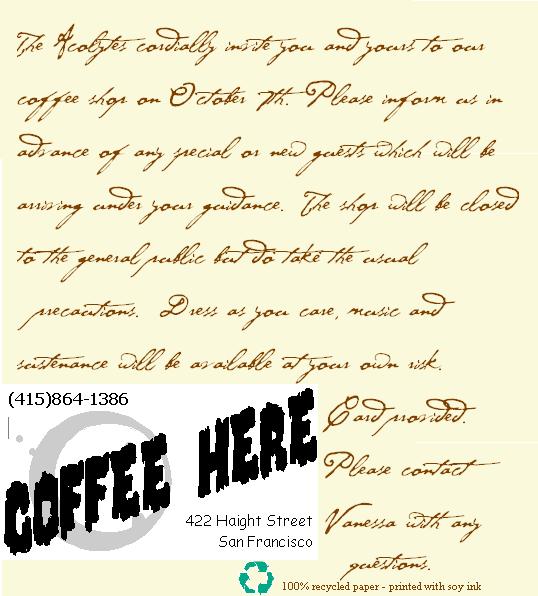 The Acolytes cordially invite you and yours to our
coffee shop on October 7th. Please inform us in
advance of any special or new guests which will be
arriving under your guidance. The shop will be closed
to the general public but do take the usual
precautions. Dress as you care, music and
sustenance will be available at your own risk.
Card provided.
Please contact
Vanessa with any
questions.
(415)864-1386
COFFEE HERE
422 Haight Street
San Francisco
100% recycled paper - printed with soy ink